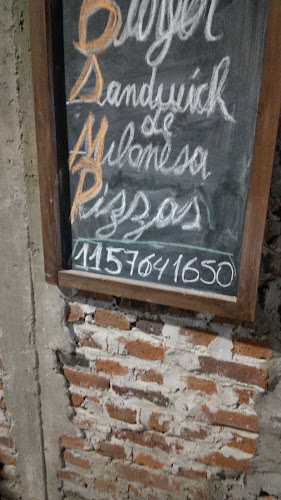 Burger
Sandwich
de
Milanesa
Pizzas
1157641650